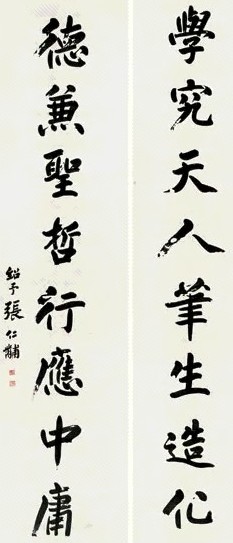 學究天人筆生造化
德兼聖哲行應中庸
紹予張仁黼